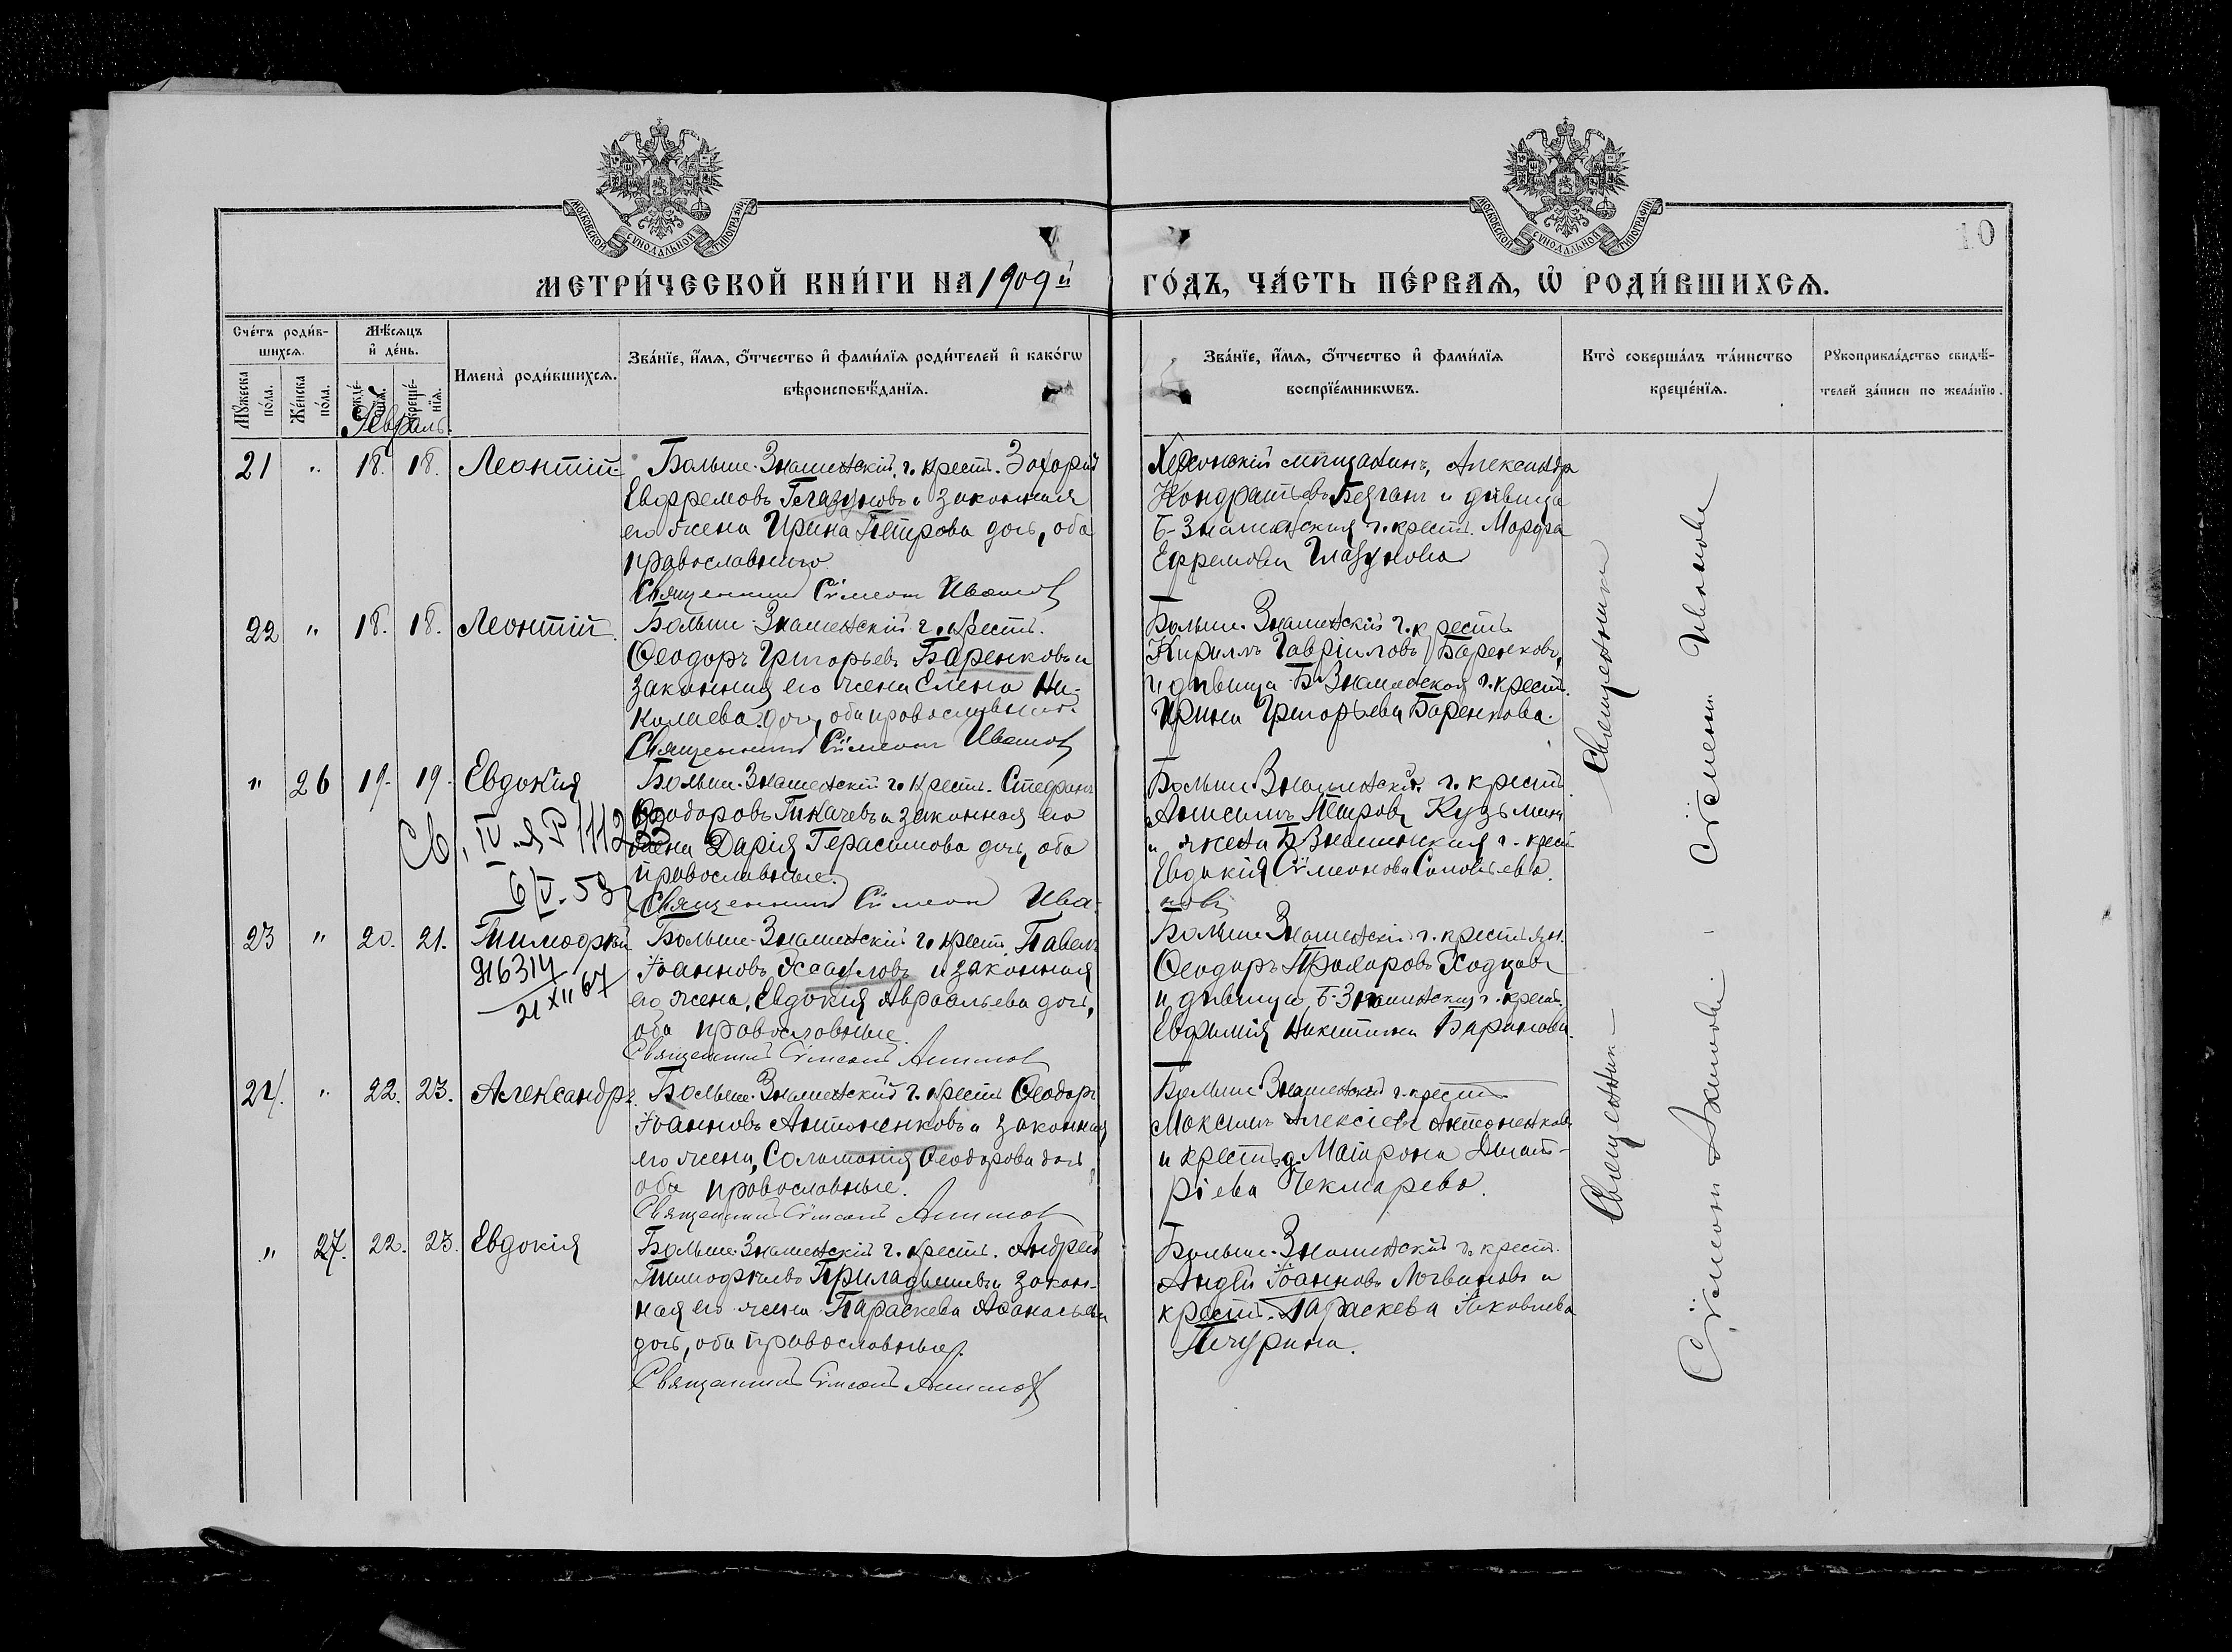 МОСКОВСКОЙ СѴНОДАЛЬНОЙ ТИПОГРАФІИ
МОСКОВСКОЙ СѴНОДАЛЬНОЙ ТИПОГРАФІИ
10
МЕТРИ́ЧЕСКОЙ КНИ́ГИ НА 1909й
ГО́ДЪ, ЧА́СТЬ ПЕ́РВАѦ, Ѡ҆ РОДИ́ВШИХСѦ.
Сче́тъ роди́в-
шихсѧ.
Мꙋ́жеска по́ла.
Же́нска по́ла.
Мѣ́сѧцъ
и҆ де́нь.
креще́-
нїѧ.
Февраль.
Имена̀ роди́вшихсѧ.
Зва́нїе, и҆́мѧ, ѻ҆́тчество и҆ фами́лїѧ роди́телей и҆ како́гѡ
вѣроисповѣ́данїѧ.
Зва́нїе, и҆́мѧ, ѻ҆́тчество и҆ фами́лїѧ
воспрїе́мникѡвъ.
Кто̀ соверша́лъ та́инство
креще́нїѧ.
Рꙋкоприкла́дство свидѣ́-
телей за́писи по жела́нїю.
21 " 18. 18. Леонтій
Больше-Знаменскій г. крест. Захарій
Евфремовъ Глазуновъ и законная
его жена Ирина Петрова дочь, оба
православнаго
Священникъ Сѵмеонъ Ивановъ
Херсонскій мѣщанинъ, Александръ
Кондратьевъ и дѣвица
Б-Знаменская г. крест. Марфа
Ефремова Глазунова
22 " 18. 18. Леонтій.
Больше-Знаменскій г. крест.
Ѳеодоръ Григорьевъ Баренковъ и
законная его жена Елена Ни-
колаева дочь, оба православные.
Священникъ Сѵмеонъ Ивановъ
Больше-Знаменскій г. крест.
Кириллъ Гавріиловъ Баренковъ,
и дѣвица Б-Знаменская г. крест.
Ирина Григорьева Баренкова.
" 26 19. 19. Евдокія
Больше-Знаменскій г. крест. Стефанъ
Ѳеодоровъ Ткачевъ и законная его
жена Дарія Герасимова дочь, оба
православные.
Священникъ Сѵмеонъ Ива-
новъ
Св, IV
6/V-53
Больше-Знаменскій г. крест.
Анисимъ Петровъ Кузьминъ
и жена Б-Знаменская г. крест
Евдокія Сѵмеонова Соловьева.
23 " 20. 21. Тимоѳей
916314
21 XII 67
Больше-Знаменскій г. крест. Павелъ
Іоанновъ и законная
его жена, Евдокія дочь,
оба православные.
Священникъ Сѵмеонъ
Больше-Знаменскій г. крестьян.
Ѳеодоръ Прохоровъ
и дѣвица, Б-Знаменская г. крест.
Евфимія Никитина Баранова.
24. " 22. 23. Александръ.
Больше-Знаменскій г. крест. Ѳеодоръ
Іоанновъ Антоненковъ и законная
его жена, Саломонія Ѳеодорова дочь,
оба православные.
Священникъ Сѵмеонъ
Больше-Знаменскій г. крест
Максимъ Алексіевъ Антоненковъ
и крест. д. Матрона Димит-
ріева Чекмарева.
" 27. 22. 23. Евдокія
Больше-Знаменскій г. крест. Андрей
Тимоѳеевъ и закон-
ная его жена Параскева Аѳанасьева
дочь, оба православные.
Священникъ Сѵмеонъ
Больше-Знаменскій г. крест.
Андрей Іоанновъ Логвиновъ и
крест. Параскева Іаковлева
Печурина.
Священникъ
Сѵмеонъ Ивановъ
Священникъ
Сѵмеонъ